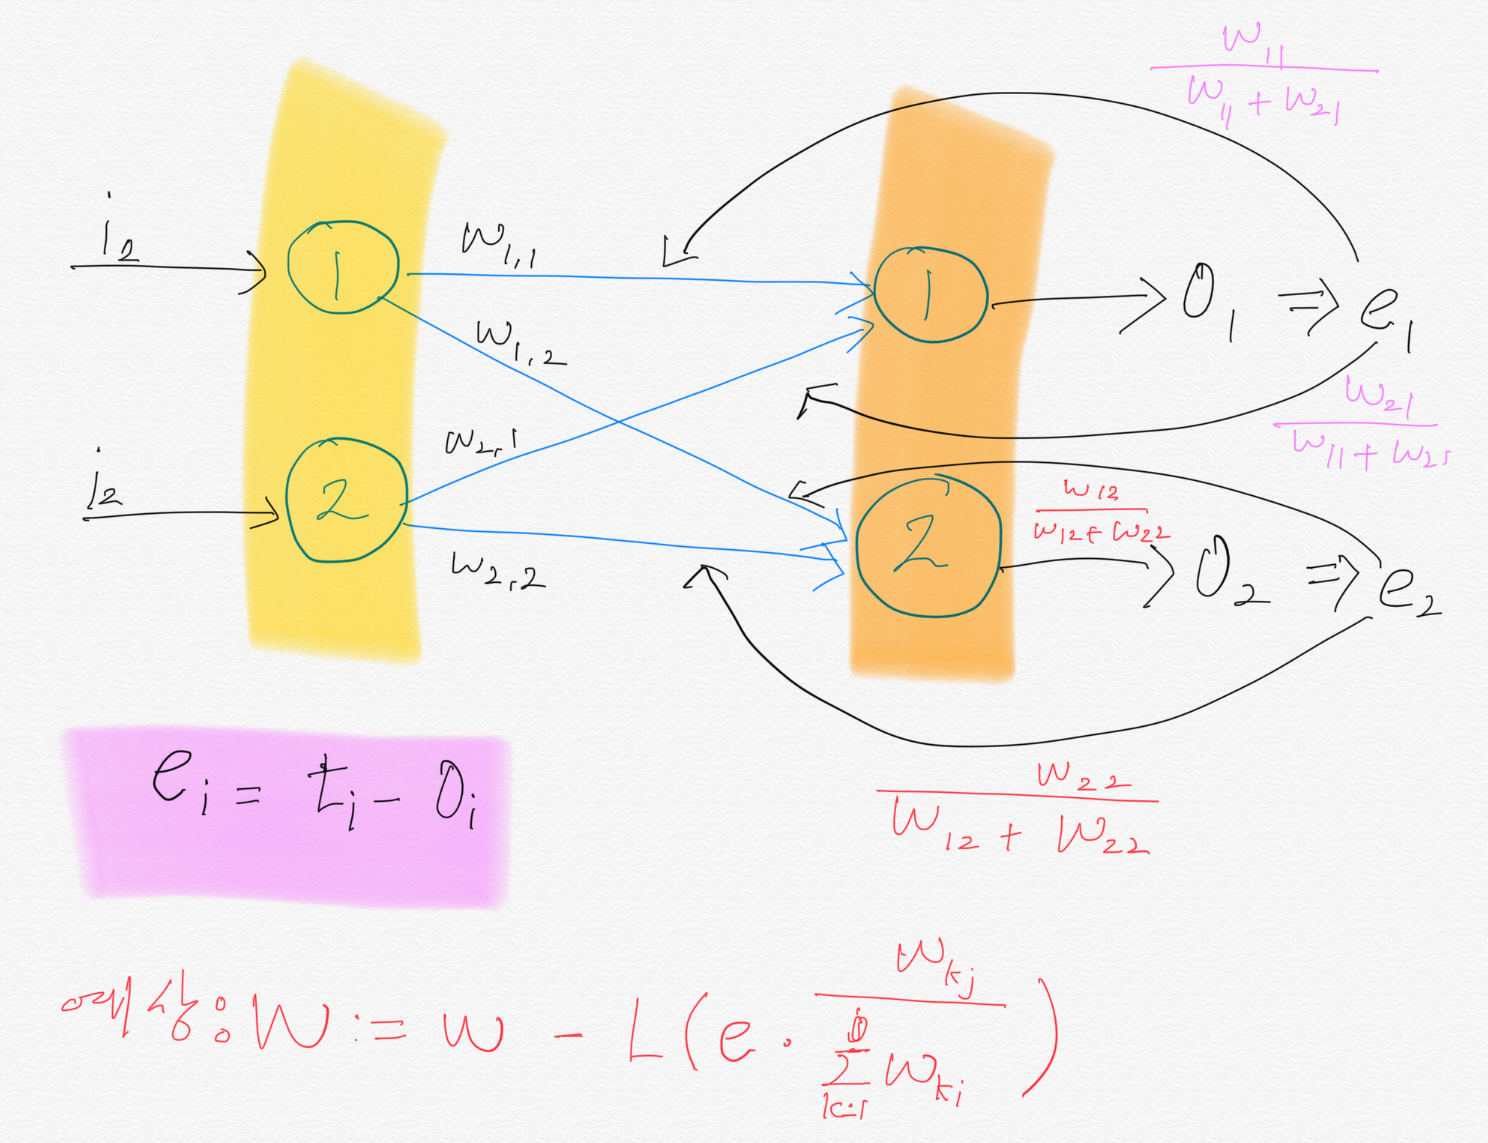 w₁₁
w₁₁ + w₂₁
i₂
1
w₁,₁
1
O₁ ⇒ e₁
w₁,₂
w₂₁
w₁₁ + w₂₁
w₂,₁
i₂
2
2
w₁₂
w₁₂ + w₂₂
O₂ ⇒ e₂
w₂,₂
eᵢ = tᵢ - Oᵢ
w₂₂
w₁₂ + w₂₂
예상: W := w - L(e · w_kj / Σ k=1 w_ki)